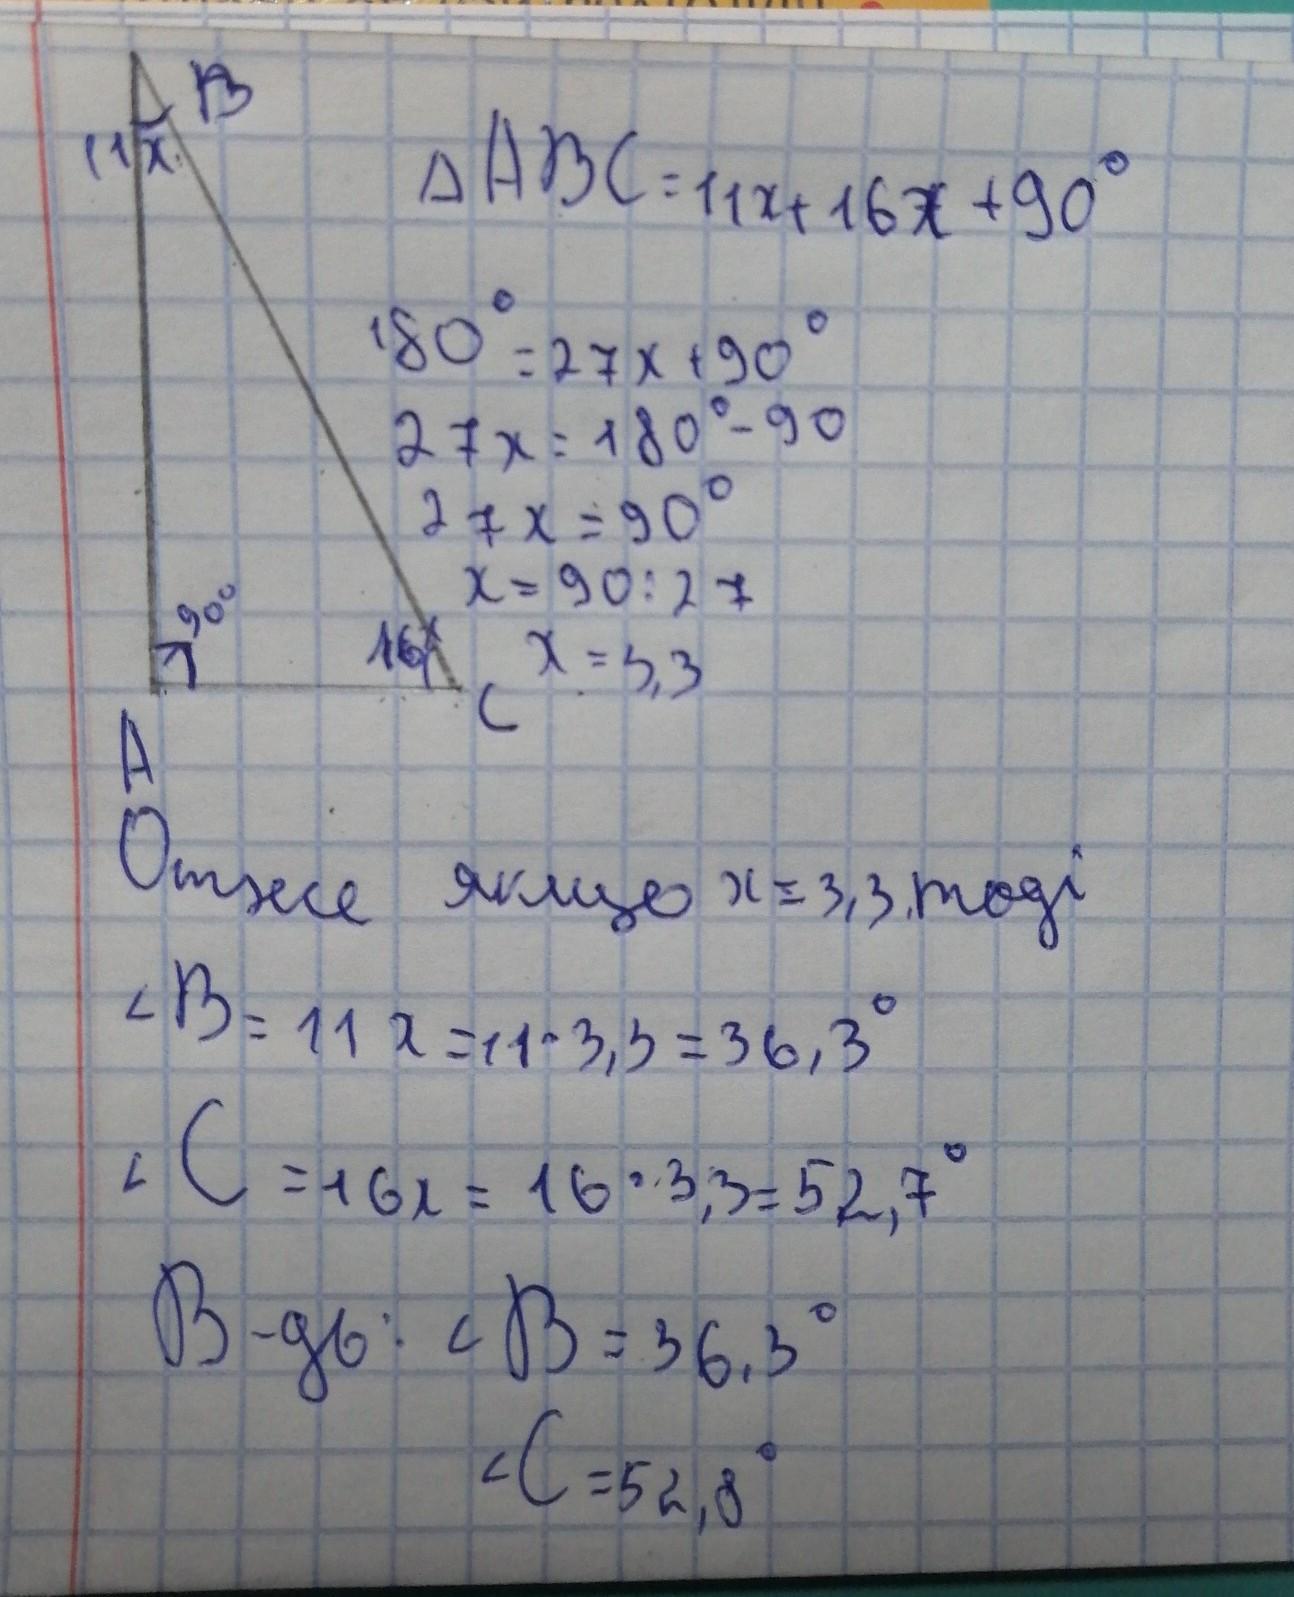 B
11x
ΔABC=11x+16x+90°
180°=27x+90°
27x=180°-90
27x=90°
x=90:27
90°
16x
x=3,3
C
A
Отже якщо x=3,3.тоді
∠B=11x=11·3,3=36,3°
∠C=16x=16·3,3=52,7°
В-дь: ∠B=36,3°
∠C=52,8°